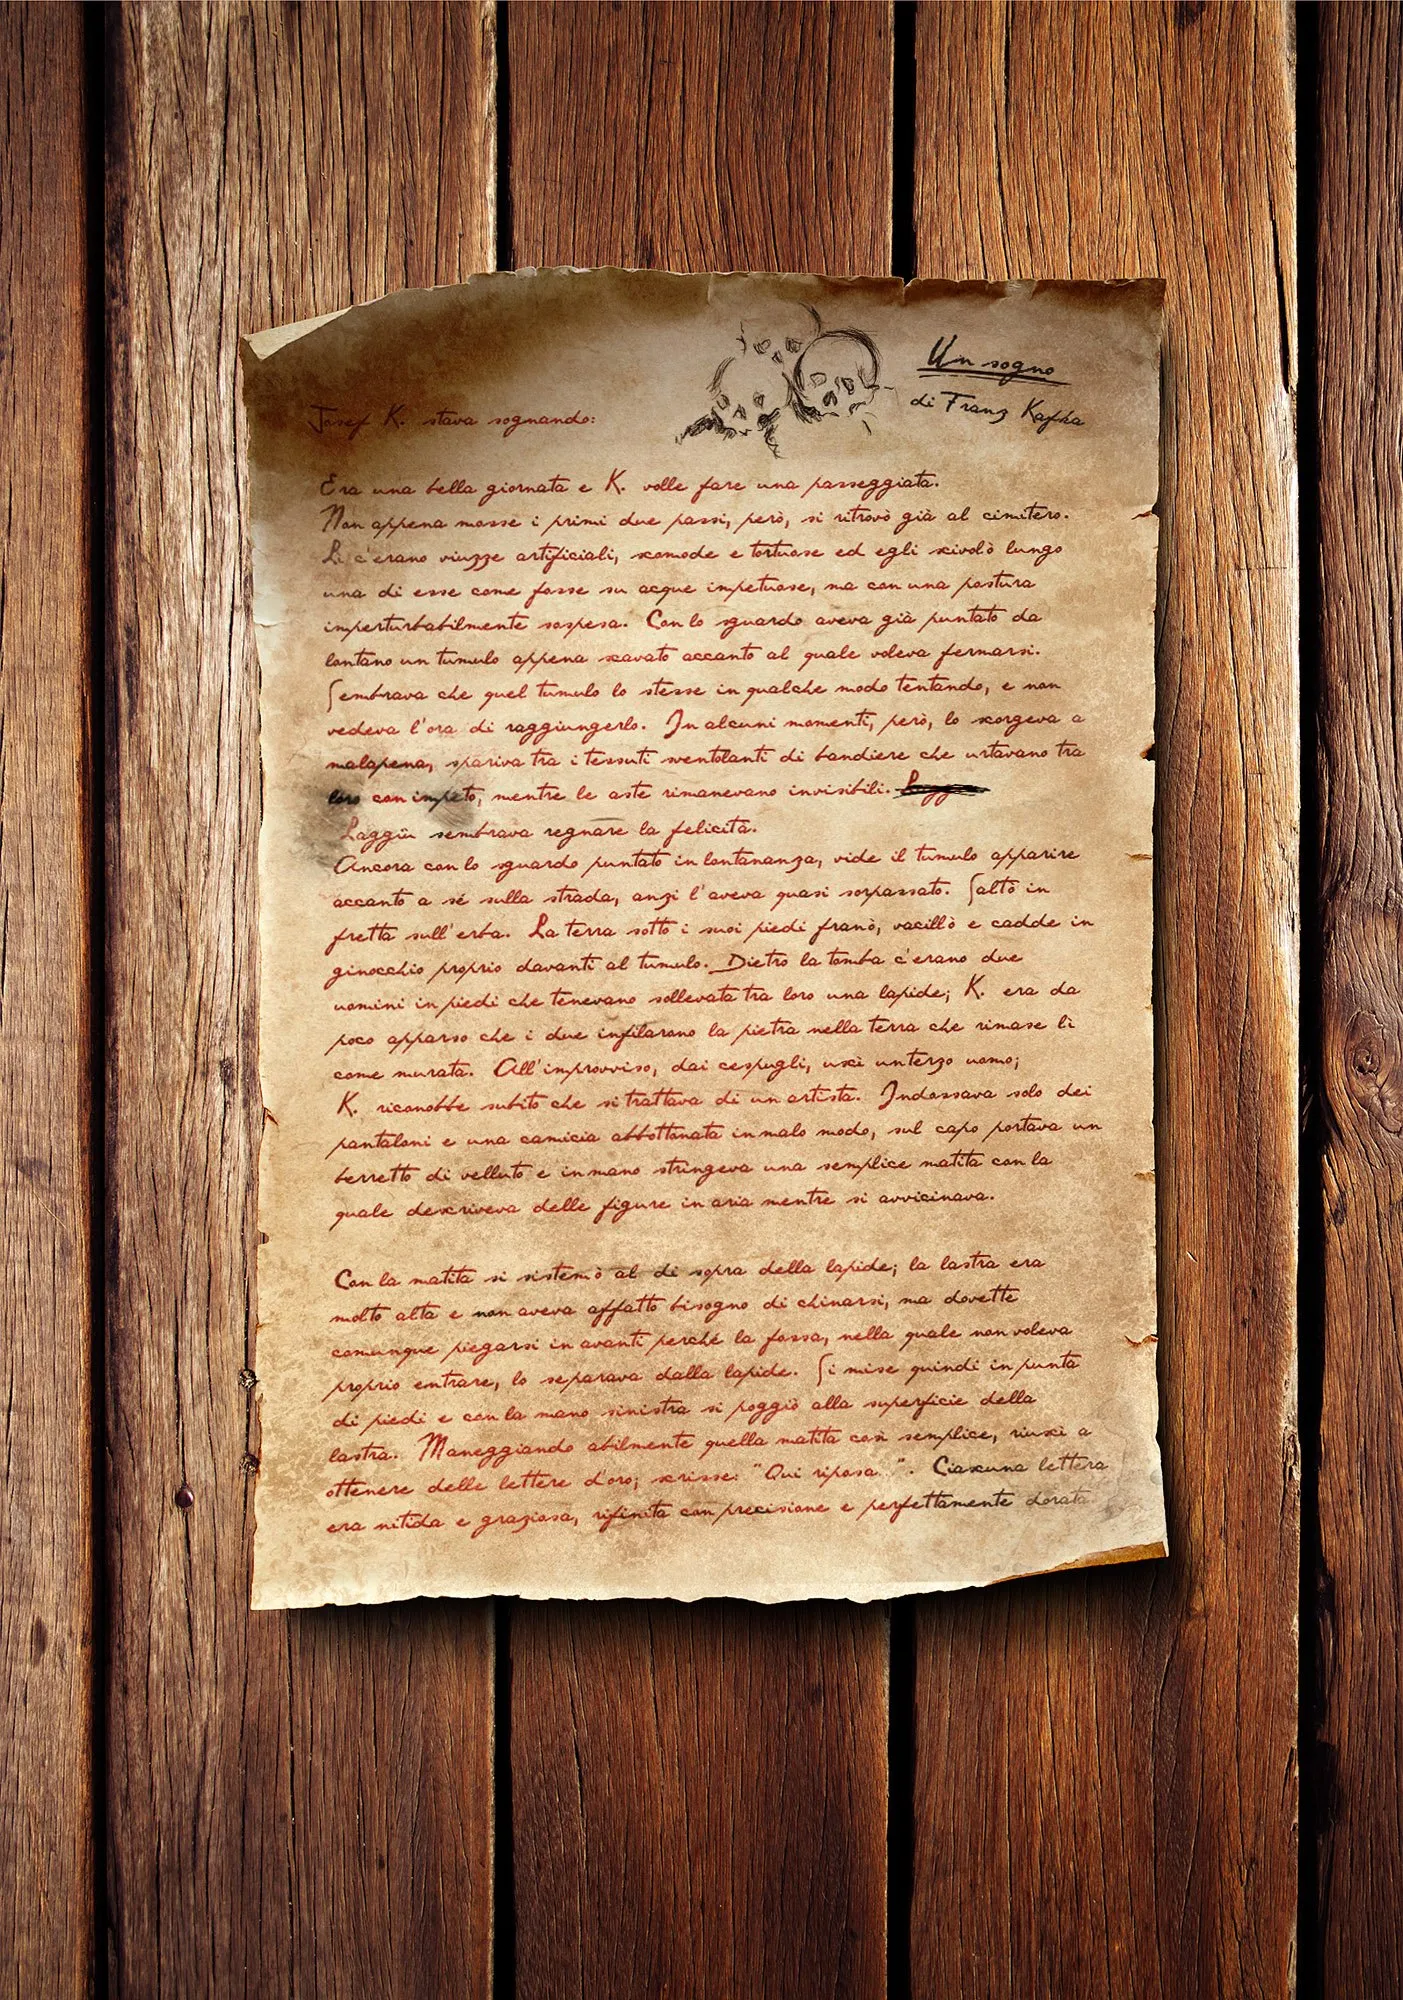 Un sogno
di Franz Kafka
Josef K. stava sognando:
Era una bella giornata e K. volle fare una passeggiata.
Non appena mosse i primi due passi, però, si ritrovò già al cimitero.
Lì c'erano viuzze artificiali, scomode e tortuose ed egli scivolò lungo
una di esse come fosse su acque impetuose, ma con una postura
imperturbabilmente sospesa. Con lo sguardo aveva già puntato da
lontano un tumulo appena scavato accanto al quale voleva fermarsi.
Sembrava che quel tumulo lo stesse in qualche modo tentando, e non
vedeva l'ora di raggiungerlo. In alcuni momenti, però, lo scorgeva a
malapena, spariva tra i tessuti sventolanti di bandiere che urtavano tra
loro con impeto, mentre le aste rimanevano invisibili.
Laggiù sembrava regnare la felicità.
Ancora con lo sguardo puntato in lontananza, vide il tumulo apparire
accanto a sé sulla strada, anzi l'aveva quasi sorpassato. Saltò in
fretta sull'erba. La terra sotto i suoi piedi franò, vacillò e cadde in
ginocchio proprio davanti al tumulo. Dietro la tomba c'erano due
uomini in piedi che tenevano sollevata tra loro una lapide; K. era da
poco apparso che i due infilarono la pietra nella terra che rimase lì
come murata. All'improvviso, dai cespugli, uscì un terzo uomo;
K. riconobbe subito che si trattava di un artista. Indossava solo dei
pantaloni e una camicia abbottonata in malo modo, sul capo portava un
berretto di velluto e in mano stringeva una semplice matita con la
quale descriveva delle figure in aria mentre si avvicinava.
Con la matita si sistemò al di sopra della lapide; la lastra era
molto alta e non aveva affatto bisogno di chinarsi, ma dovette
comunque piegarsi in avanti perché la fossa, nella quale non voleva
proprio entrare, lo separava dalla lapide. Si mise quindi in punta
di piedi e con la mano sinistra si poggiò alla superficie della
lastra. Maneggiando abilmente quella matita così semplice, riuscì a
ottenere delle lettere d'oro; scrisse: "Qui riposa...". Ciascuna lettera
era nitida e graziosa, rifinita con precisione e perfettamente dorata